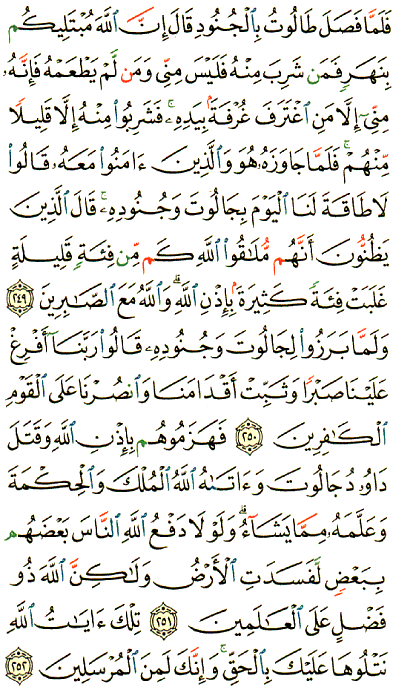 فَلَمَّا فَصَلَ طَالُوتُ بِٱلْجُنُودِ قَالَ إِنَّ ٱللَّهَ مُبْتَلِيكُم
بِنَهَرٍ فَمَن شَرِبَ مِنْهُ فَلَيْسَ مِنِّى وَمَن لَّمْ يَطْعَمْهُ فَإِنَّهُۥ
مِنِّىٓ إِلَّا مَنِ ٱغْتَرَفَ غُرْفَةًۢ بِيَدِهِۦ ۚ فَشَرِبُوا۟ مِنْهُ إِلَّا قَلِيلًا
مِّنْهُمْ ۚ فَلَمَّا جَاوَزَهُۥ هُوَ وَٱلَّذِينَ ءَامَنُوا۟ مَعَهُۥ قَالُوا۟
لَا طَاقَةَ لَنَا ٱلْيَوْمَ بِجَالُوتَ وَجُنُودِهِۦ ۚ قَالَ ٱلَّذِينَ
يَظُنُّونَ أَنَّهُم مُّلَٰقُوا۟ ٱللَّهِ كَم مِّن فِئَةٍ قَلِيلَةٍ
غَلَبَتْ فِئَةً كَثِيرَةًۢ بِإِذْنِ ٱللَّهِ ۗ وَٱللَّهُ مَعَ ٱلصَّٰبِرِينَ ٢٤٩
وَلَمَّا بَرَزُوا۟ لِجَالُوتَ وَجُنُودِهِۦ قَالُوا۟ رَبَّنَآ أَفْرِغْ
عَلَيْنَا صَبْرًا وَثَبِّتْ أَقْدَامَنَا وَٱنصُرْنَا عَلَى ٱلْقَوْمِ
ٱلْكَٰفِرِينَ ٢٥٠ فَهَزَمُوهُم بِإِذْنِ ٱللَّهِ وَقَتَلَ
دَاوُۥدُ جَالُوتَ وَءَاتَىٰهُ ٱللَّهُ ٱلْمُلْكَ وَٱلْحِكْمَةَ
وَعَلَّمَهُۥ مِمَّا يَشَآءُ ۗ وَلَوْلَا دَفْعُ ٱللَّهِ ٱلنَّاسَ بَعْضَهُم
بِبَعْضٍ لَّفَسَدَتِ ٱلْأَرْضُ وَلَٰكِنَّ ٱللَّهَ ذُو
فَضْلٍ عَلَى ٱلْعَٰلَمِينَ ٢٥١ تِلْكَ ءَايَٰتُ ٱللَّهِ
نَتْلُوهَا عَلَيْكَ بِٱلْحَقِّ ۚ وَإِنَّكَ لَمِنَ ٱلْمُرْسَلِينَ ٢٥٢